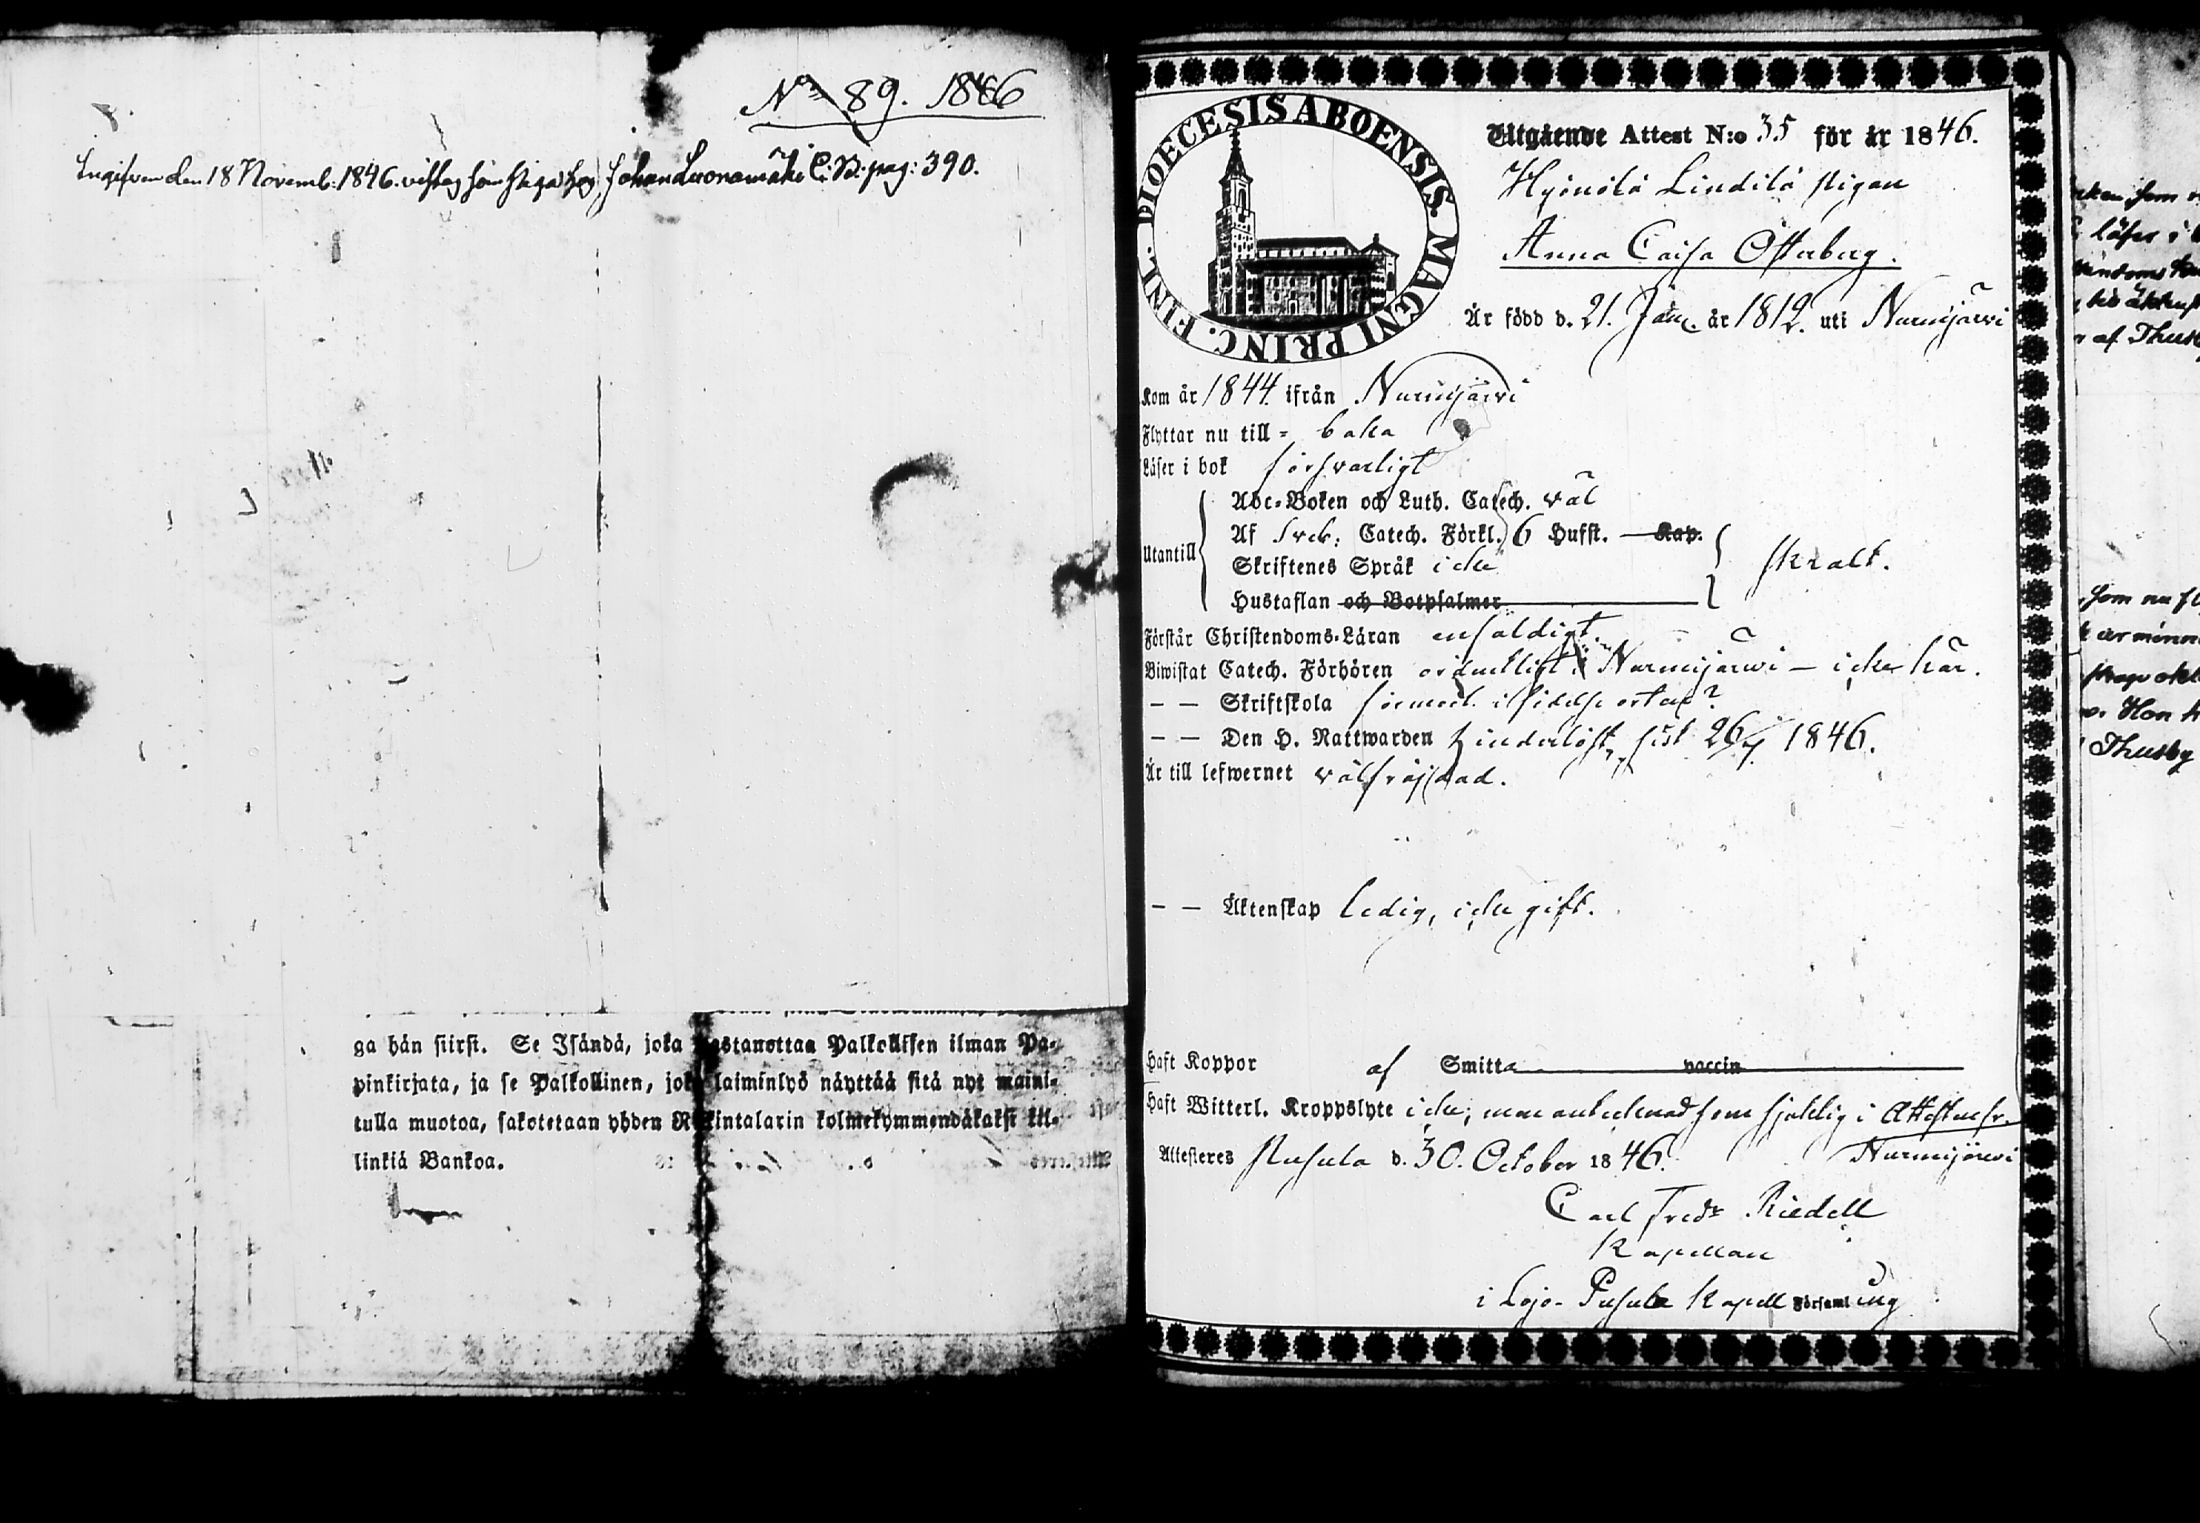 No 89. 1846
Ingifven den 18 Novemb: 1846. vistas som piga hos Johan Luonamäki C:B: pag: 390.
ga hän siirsi. Se Isändä, joka wastanottaa Palkollisen ilman Pa-
pinkirjata, ja se Palkollinen, joka laiminlyö näyttää sitä nyt maini-
tulla muotoa, sakotetaan yhden Rikintalarin kolmekymmendäkaksi kil-
linkiä Bankoa.
DIOECESIS ABOENSIS. MAGNI PRINC. FINL.
Utgående Attest N:o 35 för år 1846.
Hyönölä Lindilä pigan
Anna Caisa Österberg.
Är född d. 21. Jan. år 1812. uti Nurmijärvi
Kom år 1844. ifrån Nurmijärvi
Flyttar nu till- baka
Läser i bok försvarligt
Utantill
Abc-Boken och Luth. Catech. väl
Af Sveb: Catech. Förkl. 6 Hufst. — Kap.
Skriftenes Språk icke
Hustaflan och Botpsalmer
skralt.
Förstår Christendoms-Läran enfaldigt.
Biwistat Catech. Förhören ordentligt i Nurmijärvi — icke här.
— — Skriftskola förmod. i födelse orten?
— — Den H. Nattwarden hinderlöst, sist 26/7 1846.
Är till lefwernet välfräjdad.
— — Äktenskap ledig, icke gift.
Haft Koppor af Smitta vaccin
Haft Witterl. Kroppslyte icke; men antecknad som sjuklig i Attesten fr.
Nurmijärvi
Attesteres Pusula d. 30. October 1846.
Carl Fredr Riedell
Kapellan
i Lojo- Pusula Kapell Församling
läser i
af Thusby
som nu fl
Hon h
Thusby